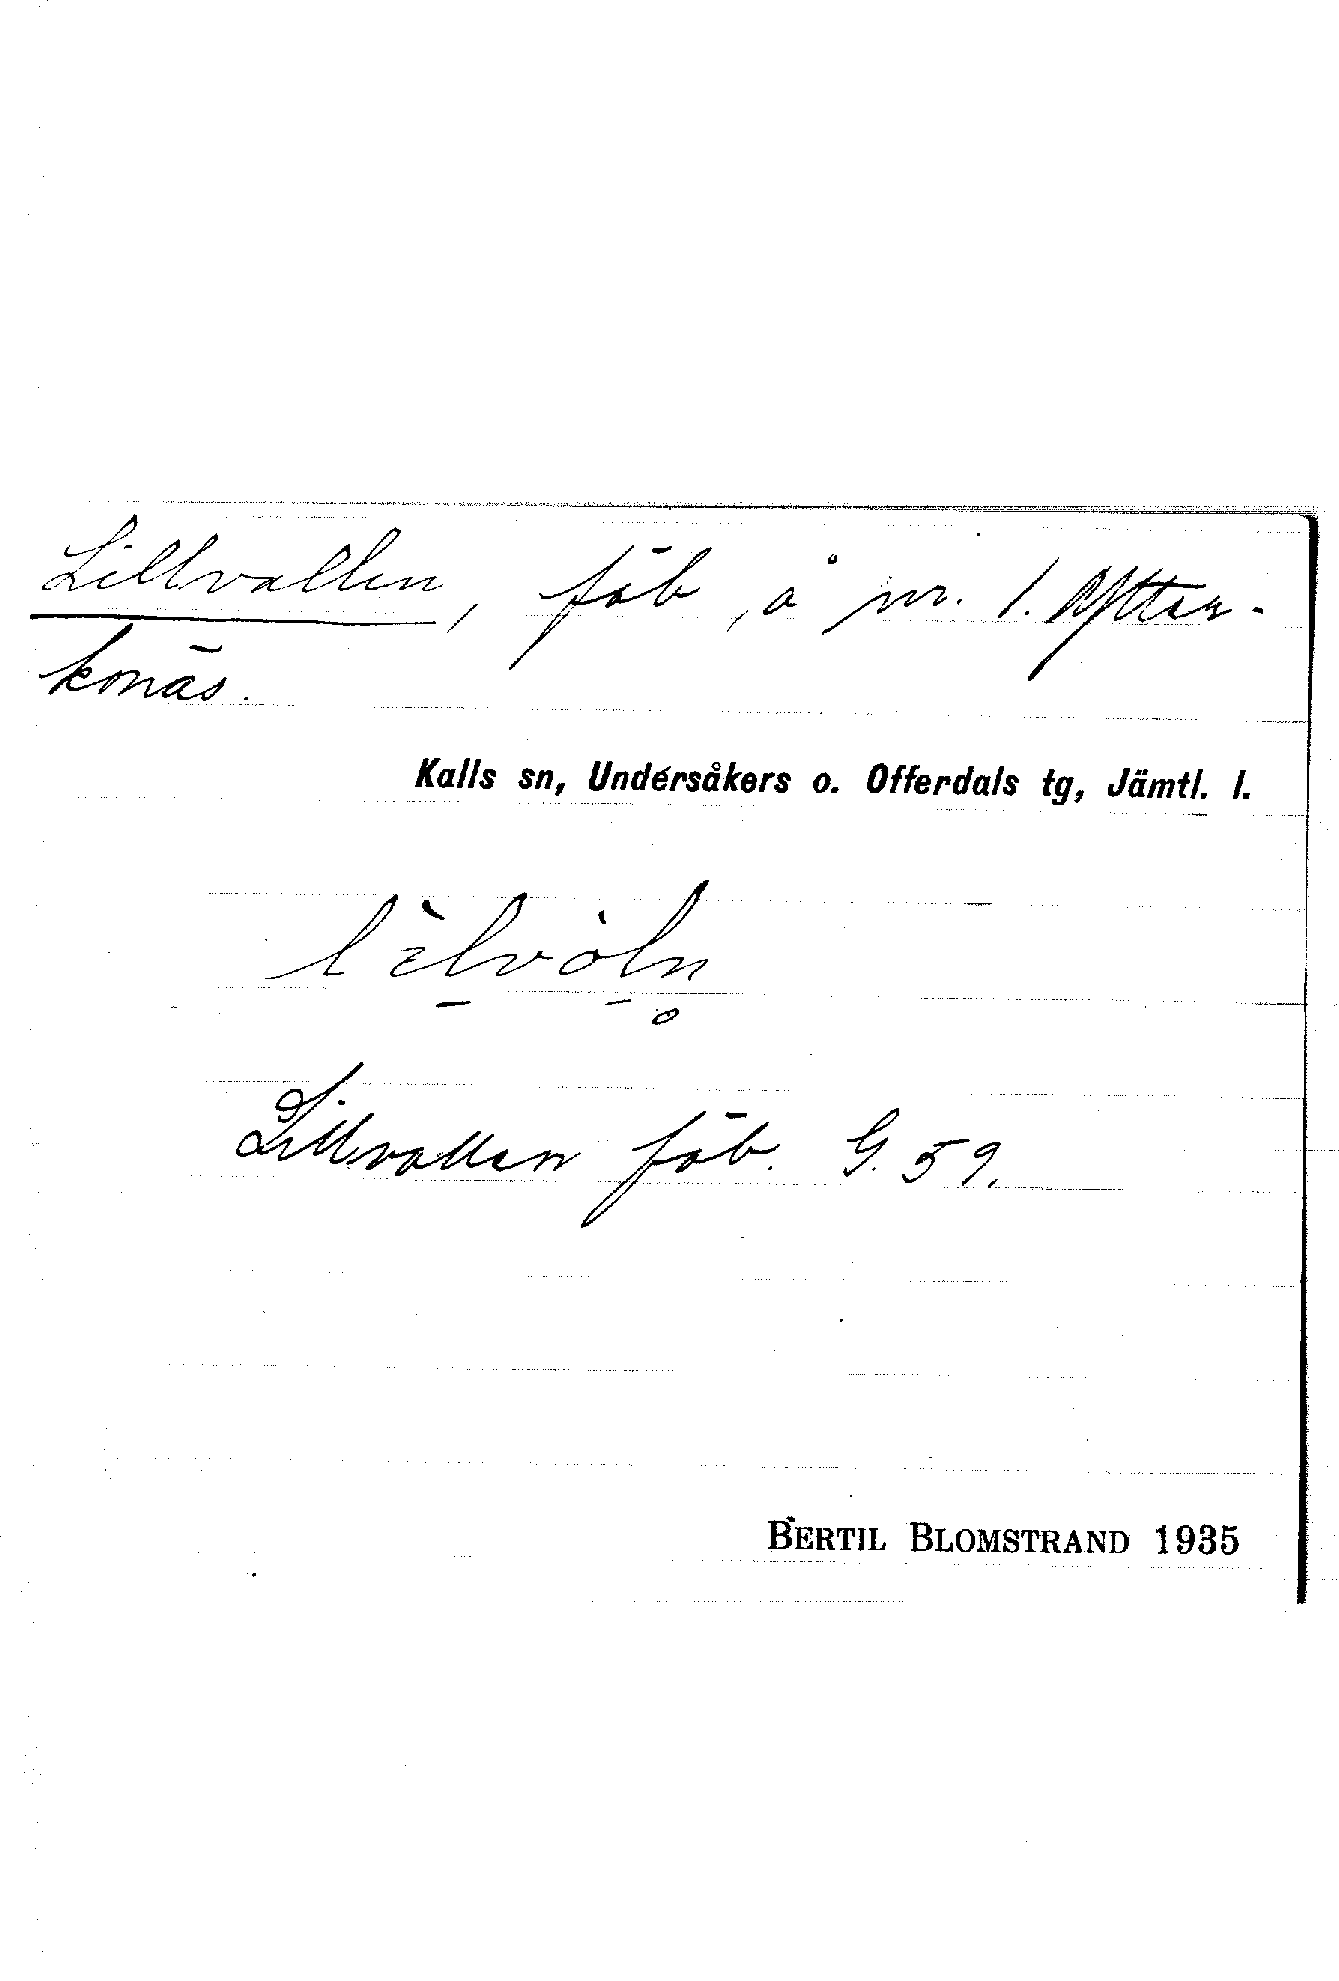 Lillvallen, fäb, å nr. 1. Ytter-
konäs.
Kalls sn, Undersåkers o. Offerdals tg, Jämtl. l.
Lillvallen fäb. G. 59.
BERTIL BLOMSTRAND 1935